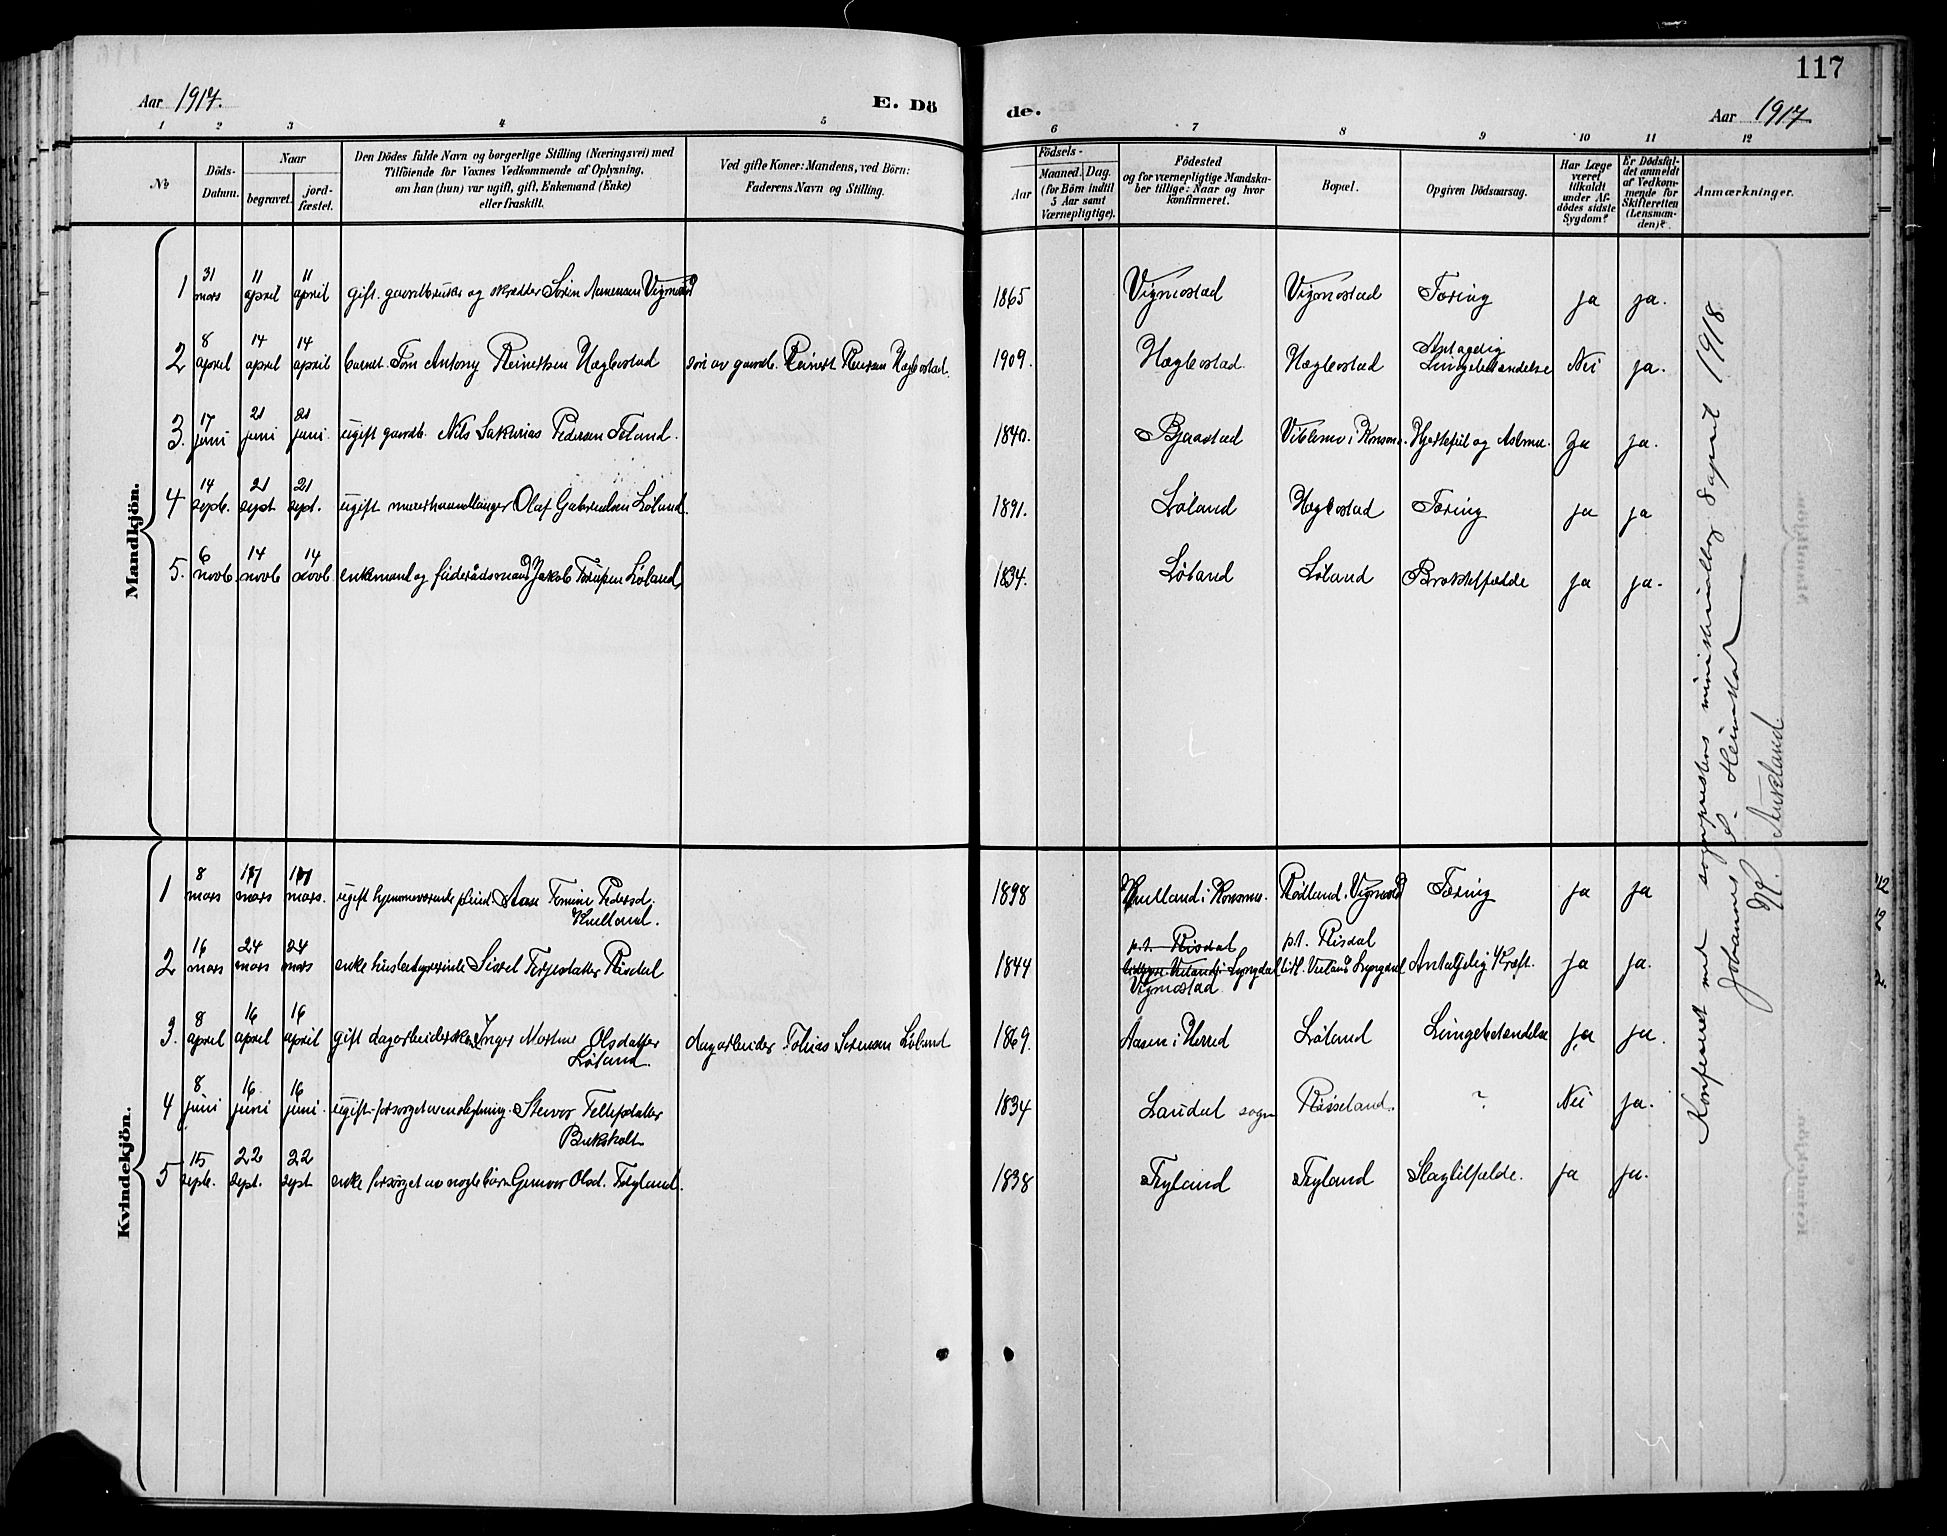 117
Aar 1917.
E. Dö
de.
Aar 1917
1 2 3 4 5 6 7 8 9 10 11 12
No
Döds-
Datum.
Naar
begravet.
jord-
fæstet.
Den Dödes fulde Navn og borgerlige Stilling (Næringsvei) med
Tilföiende for Voxnes Vedkommende af Oplysning,
om han (hun) var ugift, gift, Enkemand (Enke)
eller fraskilt.
Ved gifte Koner: Mandens, ved Börn:
Faderens Navn og Stilling.
Födsels-
Aar
Maaned. Dag.
(for Börn indtil
5 Aar samt
Værnepligtige).
Födested
og for værnepligtige Mandska-
ber tillige: Naar og hvor
konfirmeret.
Bopæl.
Opgiven Dödsaarsag.
Har Læge
været
tilkaldt
under Af-
dödes sidste
Sygdom?
Er Dödsfal-
det anmeldt
af Vedkom-
mende for
Skifteretten
(Lensman-
den)?
Anmærkninger.
Mandkjön.
1 31 mars 11 april 11 april gift. gaardbruker og skrædder Sørin Vigmostad 1865 Vigmostad Vigmostad Tæring ja ja.
2 8 april 14 april 14 april barnet. Tom Antony Reinertsen Hægbostad søn av gaardb. Reinert Hægbostad. 1909. Hægbostad. Hægbostad Antagelig Lungebetændelse Nei ja.
3. 17 juni 21 juni 21 juni. ugift gaardb. Nils Sakarias Pedersen 1840. Bjaastad i Konsmo. Hjertefeil og Astma. Ja ja.
4 14 septb. 21 sept 21 sept. ugift murerhaandlanger Olaf Gabrielsen Løland. 1891. Løland Hægbostad Tæring ja ja
5. 6 novb. 14 novb 14 novb. enkmand og føderådsmand Jakob Løland 1834. Løland Løland Brokktilfælde ja ja.
Kvindekjön.
1 8 mars 17 mars 17 mars. ugift hjemmeværende Pedersd.
Hulland. 1898 Hulland i Konsmo. Rødland, Vigmostad Tæring ja ja
2 16 mars 24 mars 24 mars enke husbestyrerinde Sissel Terjesdatter Risdal 1844 p.t. Risdal
Lyngdal
Vigmostad p.t. Risdal
Lyngdal Antagelig Kræft. ja ja.
3. 8 april 16 april 16 april gift dagarbeiderske Inger Martine Olsdatter
Løland. dagarbeider Tobias Sørensen Løland 1869. Aasen i Herred Løland Lungebetændelse ja ja.
4 8 juni 16 juni 16 juni. ugift forsorget av en slegtning. Tellefsdatter
Buksholt 1834 Laudal sogn Risseland. ? Nei ja.
5 15 septb. 22 sept. 22 sept enke forsørget av nogle børn Gunvor Olsd. Fryland. 1838 Fryland Fryland Slagtilfælde. ja ja.
Konfereret med sogneprestens ministerialbog 8 april 1918.
Johannes Heimstad